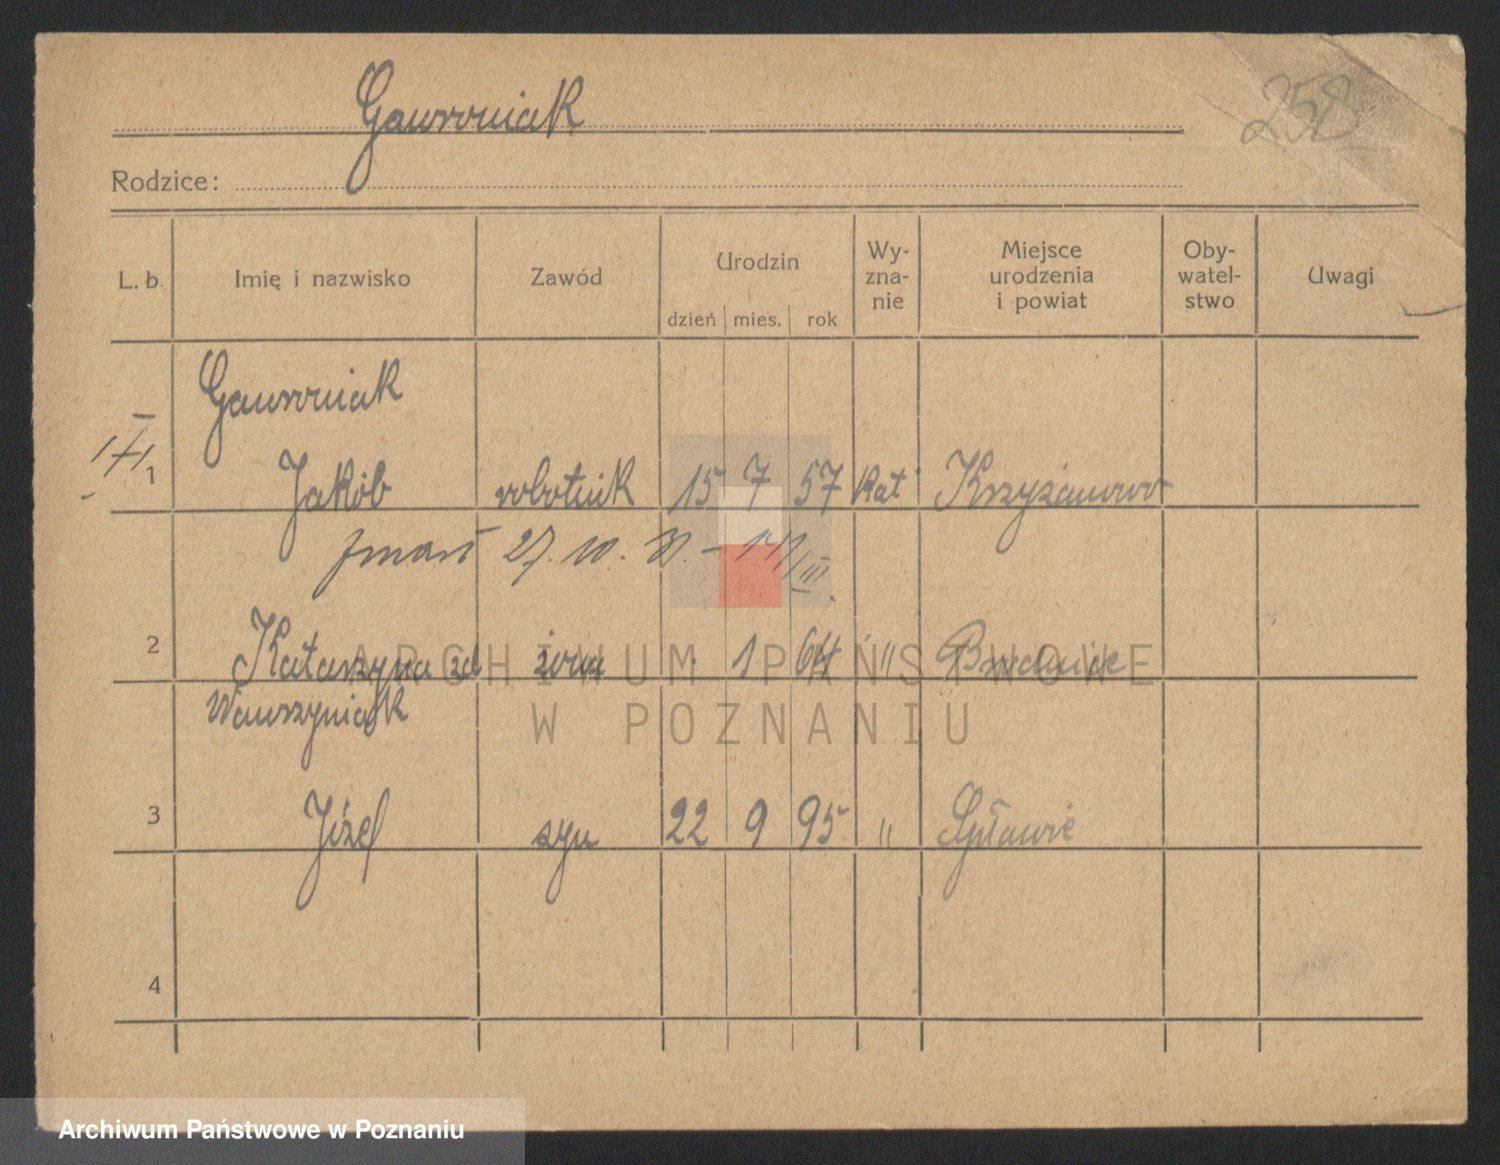 Gawroniak
258
Rodzice:
L. b. Imię i nazwisko Zawód Urodzin dzień mies. rok Wy-zna-nie Miejsce urodzenia i powiat Oby-watel-stwo Uwagi
Gawroniak
1 Jakób robotnik 15 7 57 kat Krzyżanowo
zmarł 27. 10. 31. –
2 Katarzyna zd żona 1 64 "
Wawrzyniak
3 Józef syn 22 9 95 " Spławie
4
ARCHIWUM PAŃSTWOWE
W POZNANIU
Archiwum Państwowe w Poznaniu